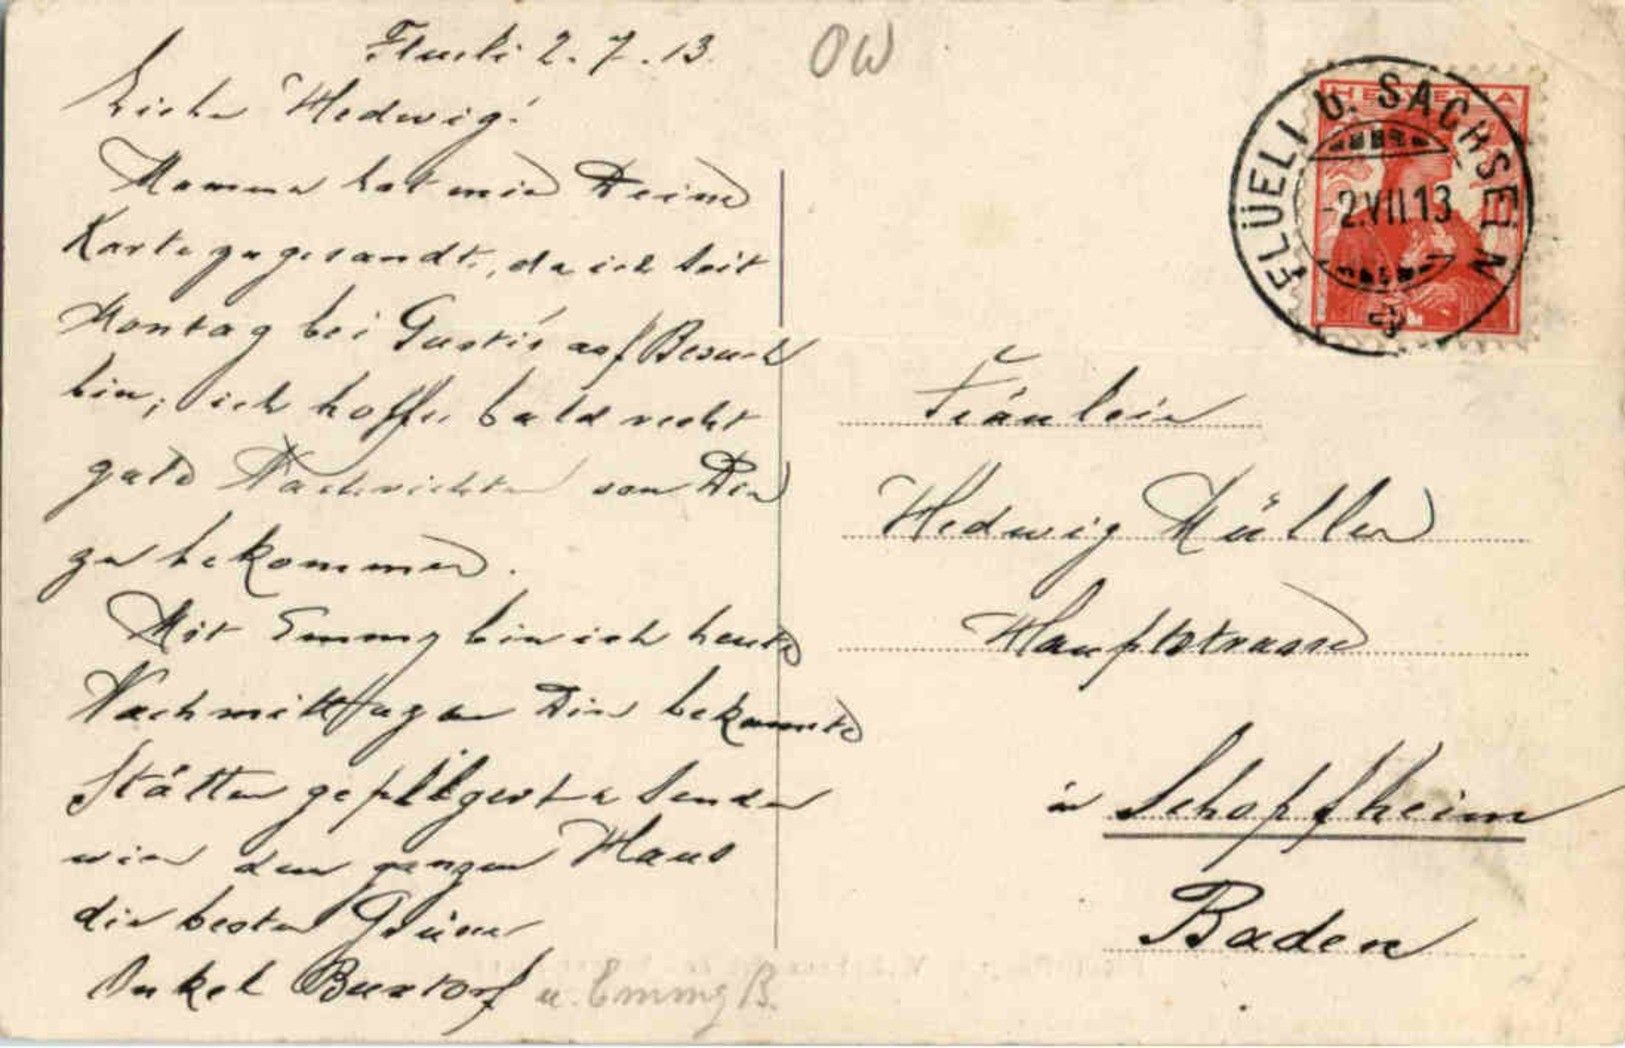 Flueli 2.7.13.
OW
Liebe Hedwig!
Mamma hat mir Deine
Karte zugesandt, da ich seit
Montag bei Gusti's auf Besuch
bin; ich hoffe bald recht
gute Nachrichten von Dir
zu bekommen.
Mit Emmy bin ich heute
Nachmittag zu Dir bekannte
Stätten gepilgert & senden
wir dem ganzen Haus
die besten Grüsse
Onkel Buxtorf u. Emmy B.
HELVETIA
FLÜELI b. SACHSELN
-2.VII.13
Fräulein
Hedwig Müller
Hauptstrasse
in Schopfheim
Baden